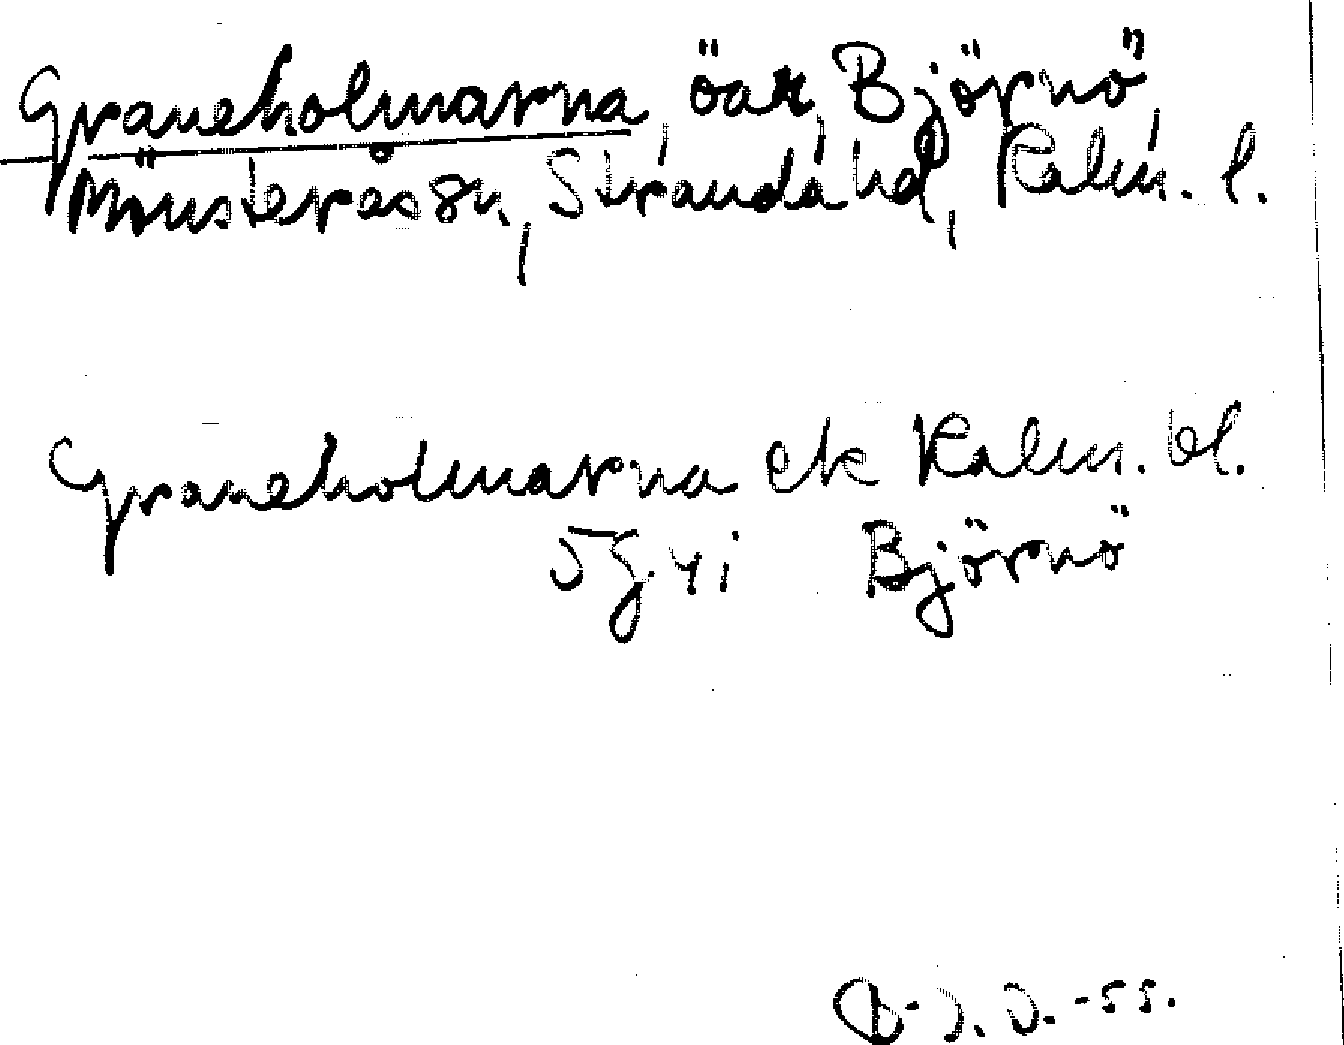 Graneholmarna, öar, Björnö,
Mönsterås sn, Stranda hd, Kalm. l.
Graneholmarna ek Kalm. bl.
5g4i Björnö
-55.